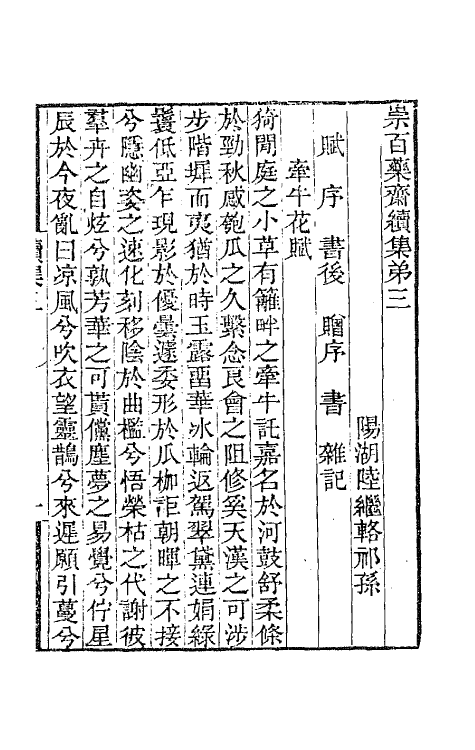 崇百藥齋續集弟三
陽湖陸繼輅祁孫
賦　序　書後　贈序　書　雜記
牽牛花賦
猗閒庭之小草有籬畔之牽牛託嘉名於河鼓舒柔條
於勁秋感匏瓜之久繫念良會之阻修奚天漢之可涉
步階墀而夷猶於時玉露畱華冰輪返駕翠黛連娟綠
鬟低亞乍現影於優曇遽委形於瓜枷詎朝暉之不接
兮隱幽姿之速化刻移陰於曲檻兮悟榮枯之代謝彼
羣卉之自炫兮孰芳華之可貰儻塵夢之易覺兮佇星
辰於今夜亂曰凉風兮吹衣望靈鵲兮來遲願引蔓兮